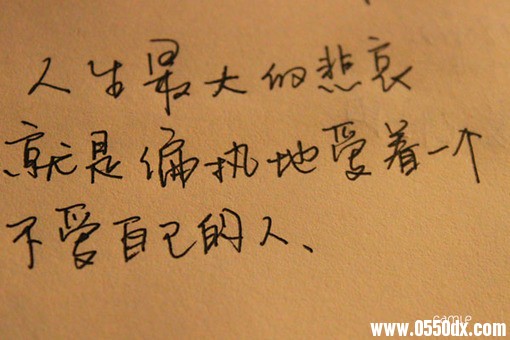 人生最大的悲哀
就是偏执地爱着一个
不爱自己的人、
camie
www.0550dx.com